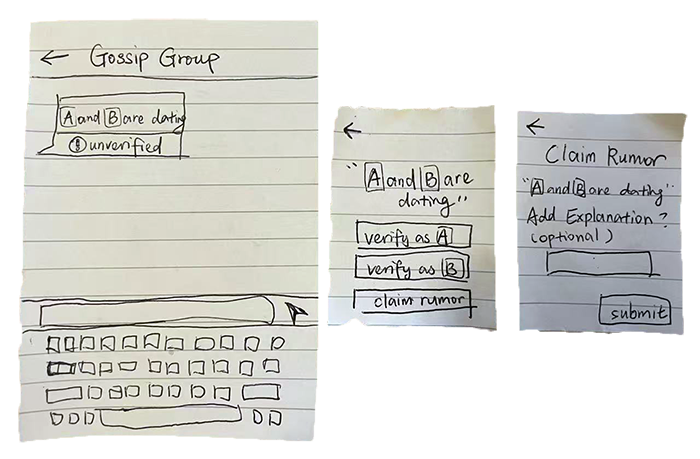 ← Gossip Group
A and B are dating
! unverified
←
"A and B are
dating"
verify as A
verify as B
claim rumor
←
Claim Rumor
"A and B are dating"
Add Explanation?
(optional)
submit